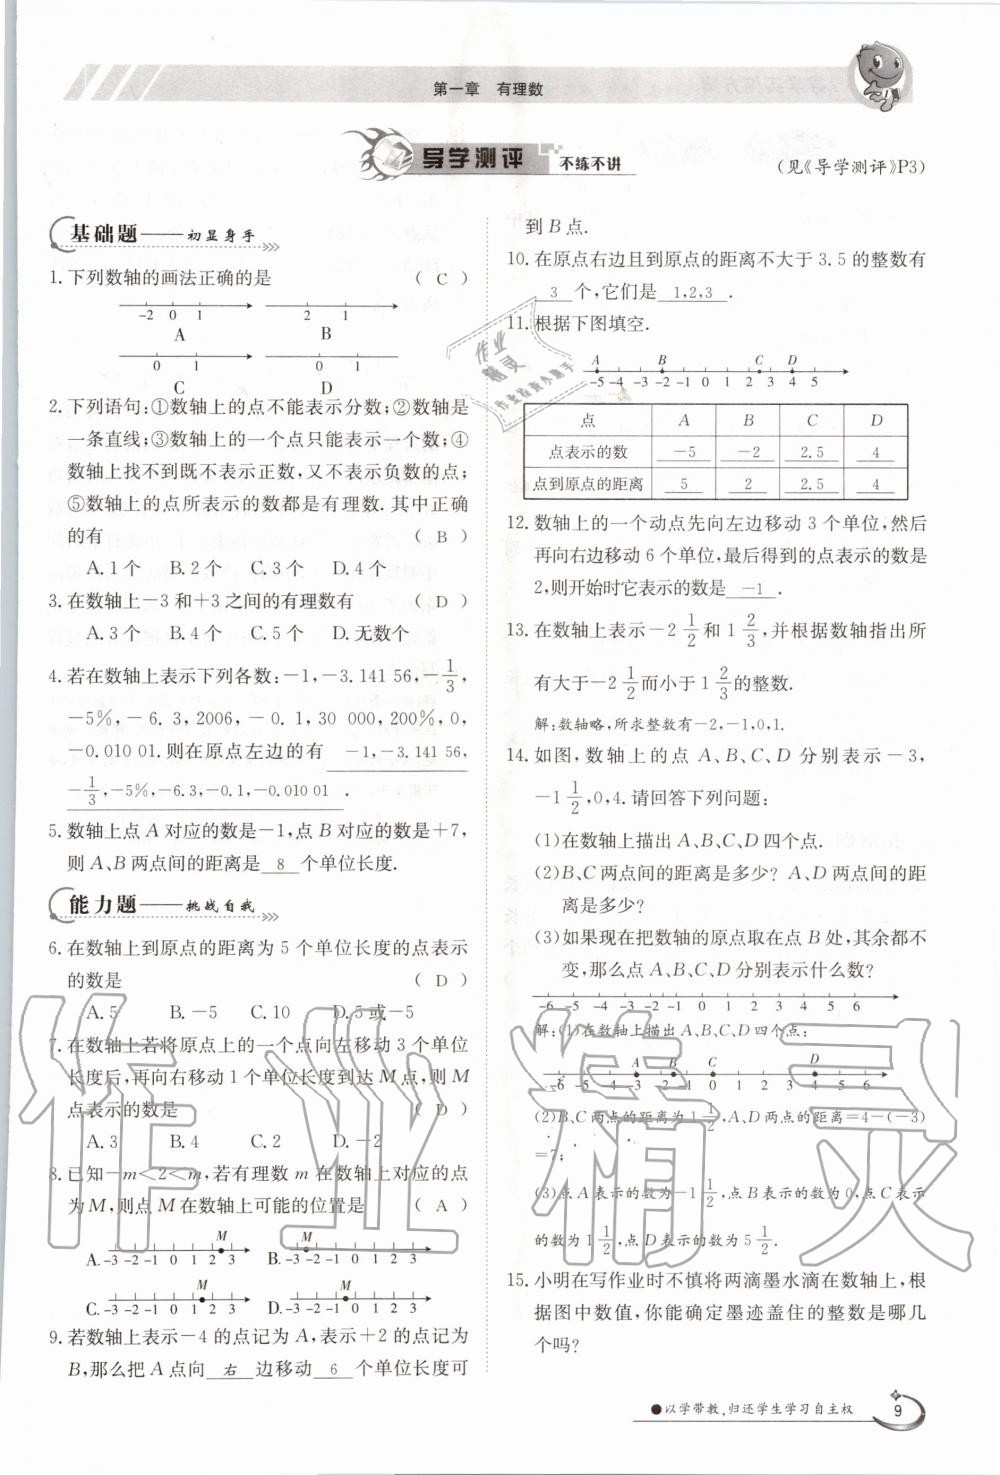 第一章 有理数
导学测评 不练不讲
(见《导学测评》P3)
基础题——初显身手
1.下列数轴的画法正确的是 ( C )
-2 0 1
A
2 1
B
0 1
C
0 1
D
2.下列语句:①数轴上的点不能表示分数;②数轴是
一条直线;③数轴上的一个点只能表示一个数;④
数轴上找不到既不表示正数,又不表示负数的点;
⑤数轴上的点所表示的数都是有理数.其中正确
的有 ( B )
A.1个 B.2个 C.3个 D.4个
3.在数轴上-3和+3之间的有理数有 ( D )
A.3个 B.4个 C.5个 D.无数个
4.若在数轴上表示下列各数:-1,-3.141 56,-1/3,
-5%,-6.3,2006,-0.1,30 000,200%,0,
-0.010 01.则在原点左边的有 -1,-3.141 56,
-1/3,-5%,-6.3,-0.1,-0.010 01 .
5.数轴上点A对应的数是-1,点B对应的数是+7,
则A、B两点间的距离是 8 个单位长度.
能力题——挑战自我
6.在数轴上到原点的距离为5个单位长度的点表示
的数是 ( D )
A.5 B.-5 C.10 D.5或-5
7.在数轴上若将原点上的一个点向左移动3个单位
长度后,再向右移动1个单位长度到达M点,则M
点表示的数是 ( D )
A.3 B.4 C.2 D.-2
8.已知-m<2<m,若有理数m在数轴上对应的点
为M,则点M在数轴上可能的位置是 ( A )
M M
A. -3 -2 -1 0 1 2 3 B. -3 -2 -1 0 1 2 3
M M
C. -3 -2 -1 0 1 2 3 D. -3 -2 -1 0 1 2 3
9.若数轴上表示-4的点记为A,表示+2的点记为
B,那么把A点向 右 边移动 6 个单位长度可
到B点.
10.在原点右边且到原点的距离不大于3.5的整数有
3 个,它们是 1,2,3 .
11.根据下图填空.
A B C D
-5 -4 -3 -2 -1 0 1 2 3 4 5
点 A B C D
点表示的数 -5 -2 2.5 4
点到原点的距离 5 2 2.5 4
12.数轴上的一个动点先向左边移动3个单位,然后
再向右边移动6个单位,最后得到的点表示的数是
2,则开始时它表示的数是 -1 .
13.在数轴上表示-2 1/2和1 2/3,并根据数轴指出所
有大于-2 1/2而小于1 2/3的整数.
解:数轴略,所求整数有-2,-1,0,1.
14.如图,数轴上的点A、B、C、D分别表示-3,
-1 1/2,0,4.请回答下列问题:
(1)在数轴上描出A、B、C、D四个点.
(2)B、C两点间的距离是多少?A、D两点间的距
离是多少?
(3)如果现在把数轴的原点取在点B处,其余都不
变,那么点A、B、C、D分别表示什么数?
-6 -5 -4 -3 -2 -1 0 1 2 3 4 5 6
解:(1)在数轴上描出A、B、C、D四个点:
A B C D
-6 -5 -4 -3 -2 -1 0 1 2 3 4 5 6
(2)B、C两点的距离为1 1/2,A、D两点的距离=4-(-3)
=7;
(3)点A表示的数为-1 1/2,点B表示的数为0,点C表示
的数为1 1/2,点D表示的数为5 1/2.
15.小明在写作业时不慎将两滴墨水滴在数轴上,根
据图中数值,你能确定墨迹盖住的整数是哪几
个吗?
●以学带教,归还学生学习自主权
9
作业精灵
作业
精灵
作业检查小助手